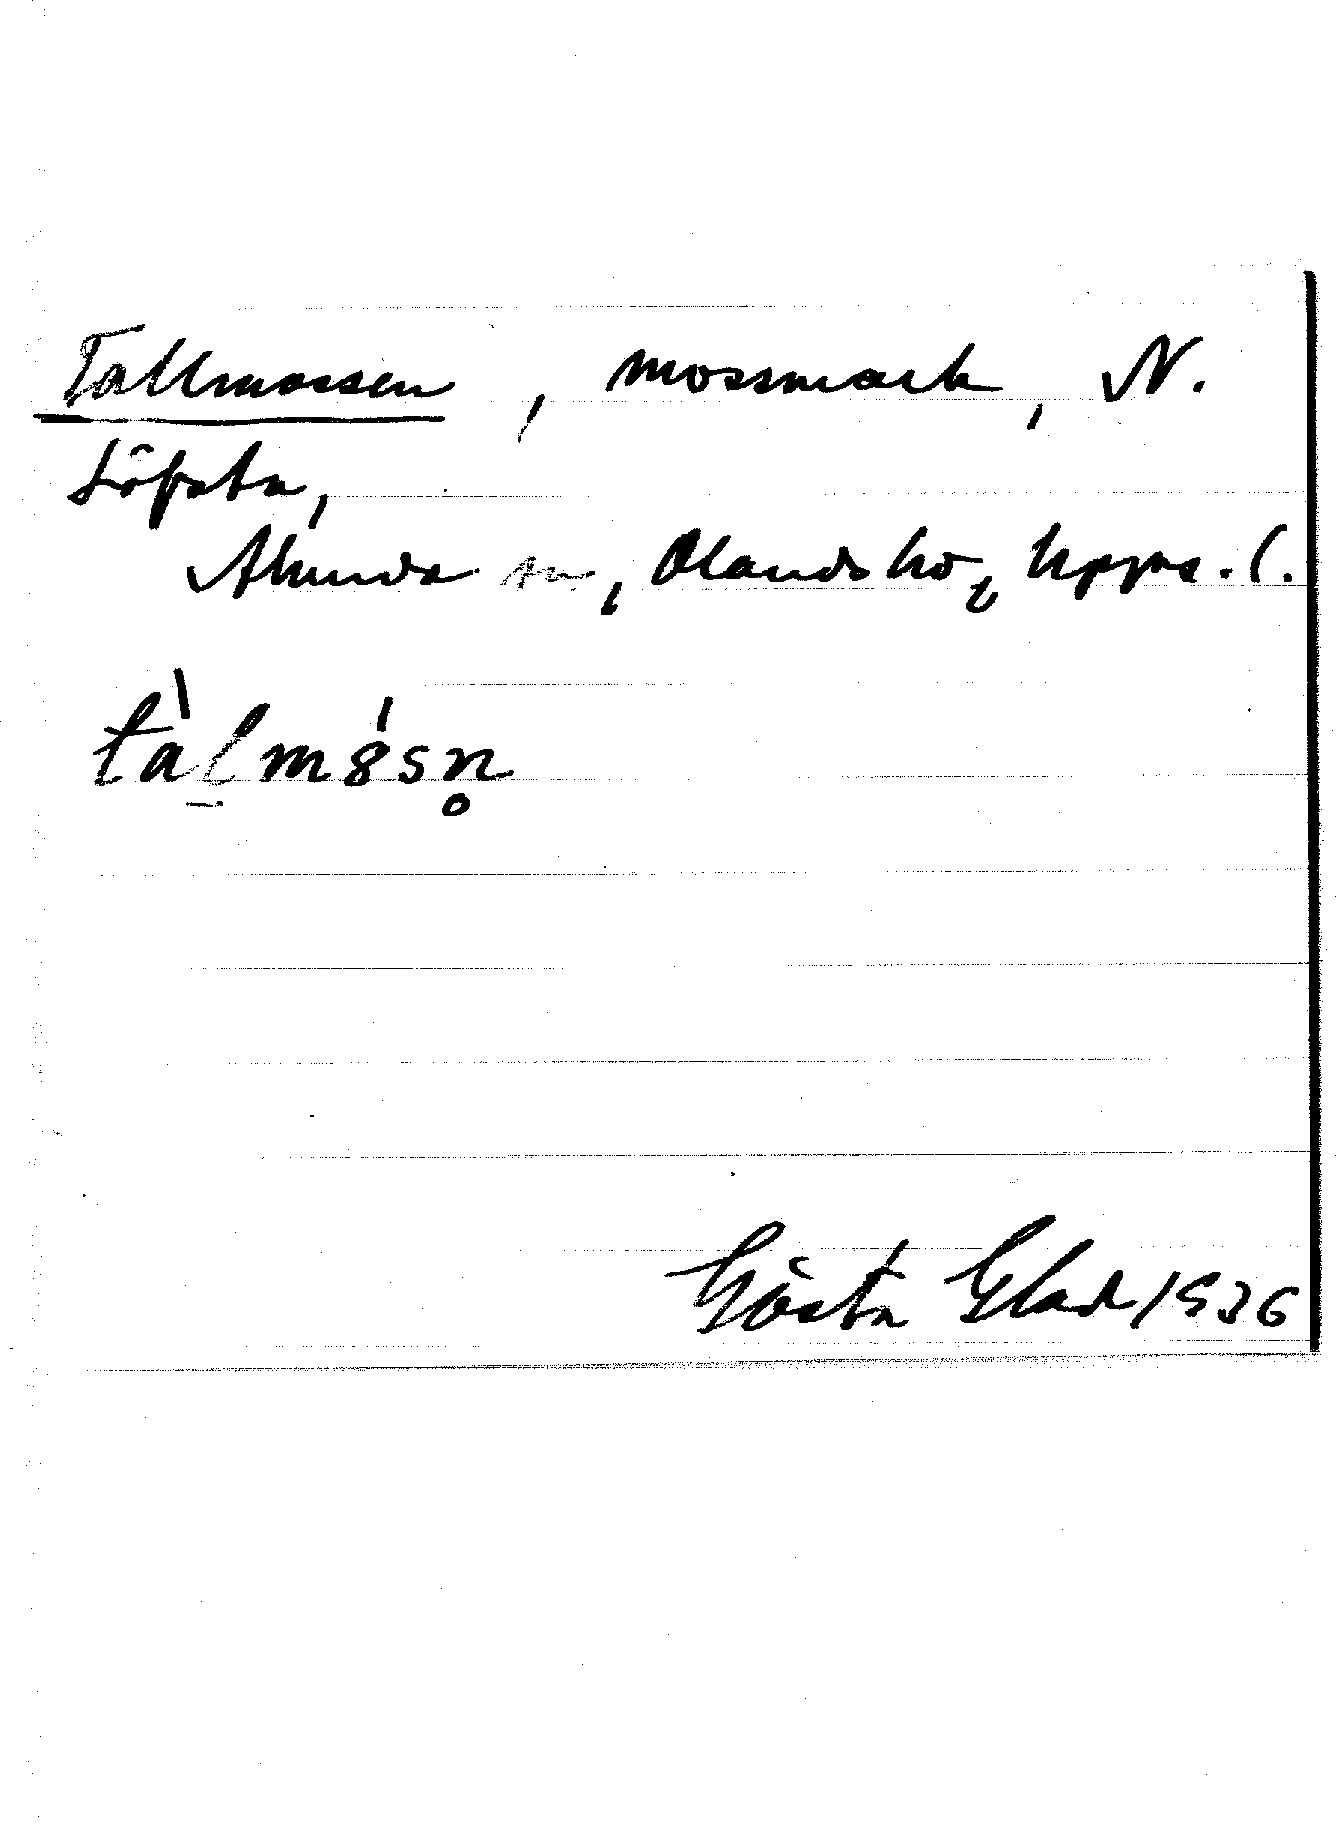 Tallmossen, mossmark, N.
Löfsta,
Alunda sn, Olands hd, Upps. l.
tàlmósn̥
Gösta Glad 1936